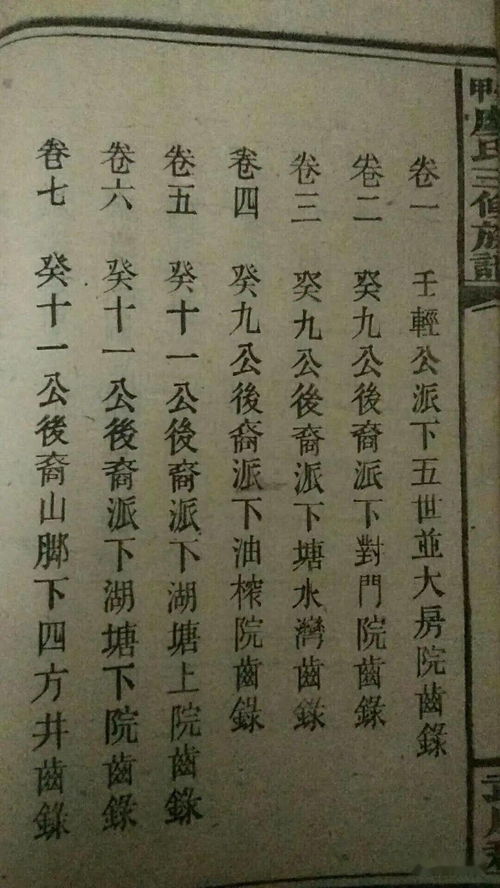 氏三修族譜
卷一 壬輕公派下五世並大房院齒錄
卷二 癸九公後裔派下對門院齒錄
卷三 癸九公後裔派下塘水灣齒錄
卷四 癸九公後裔派下油榨院齒錄
卷五 癸十一公後裔派下湖塘上院齒錄
卷六 癸十一公後裔派下湖塘下院齒錄
卷七 癸十一公後裔山腳下四方井齒錄